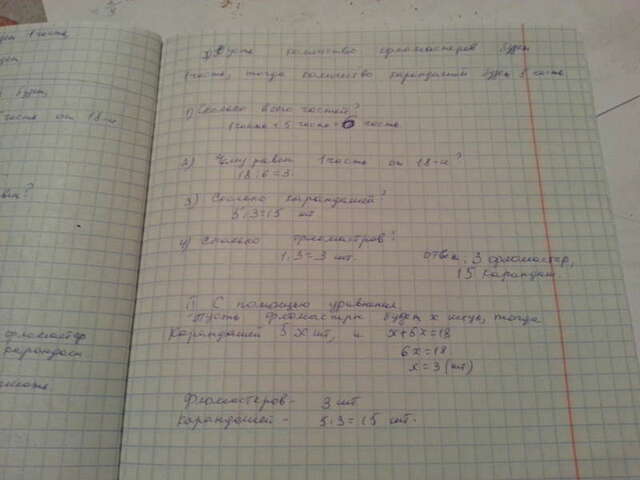 ден 1 часть,
ден
будет
часть от 18-и
Пусть количество фломастеров будет
1 часть, тогда количество карандашей будет 5 часть
1) Сколько всего частей?
1 часть + 5 часть = 6 часть
2) Чему равен 1 часть от 18-и?
18:6=3.
3) Сколько карандашей?
5·3=15 шт
4) Сколько фломастров?
1·3=3 шт.
Ответ: 3 фломастер,
15 карандаш.
С помощью уравнения
Пусть фломастры будет х штук, тогда
карандашей 5 х шт, и х+5х=18
6х=18
х=3 (шт)
Фломастеров- 3 шт.
Карандашей - 5·3=15 шт.
фломастер
карандаш